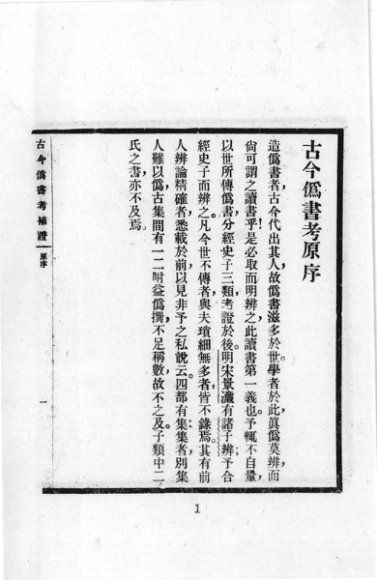 古今僞書考原序
造僞書者，古今代出其人，故僞書滋多於世。學者於此，眞僞莫辨，而
尙可謂之讀書乎！是必取而明辨之，此讀書第一義也。予輒不自量，
以世所傳僞書分經史子三類，考證於後。明宋景濂有諸子辨，予合
經史子而辨之。凡今世不傳者，與夫瑣細無多者，皆不錄焉。其有前
人辨論精確者，悉載於前，以見非予之私說云。四部有集，集者，別集
人難以僞，古集間有一二附益僞撰，不足稱數，故不之及。子類中二
氏之書，亦不及焉。
古今僞書考補證
原序
一
1